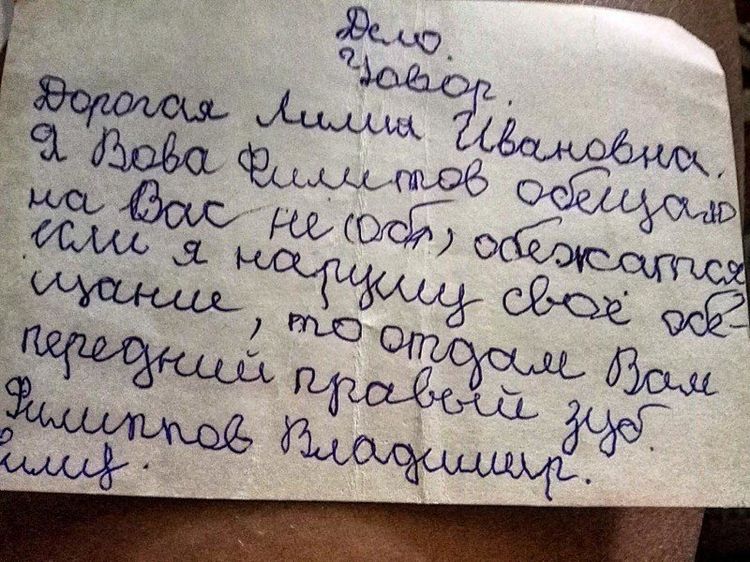 Дело.
Човор.
Дорогая Лилия Ивановна.
Я Вова Филитов обещаю
на Вас не (обт) обежатся
если я нарушу своё обе-
щание, то отдам Вам
передний правый зуб.
Филиппов Владимир.